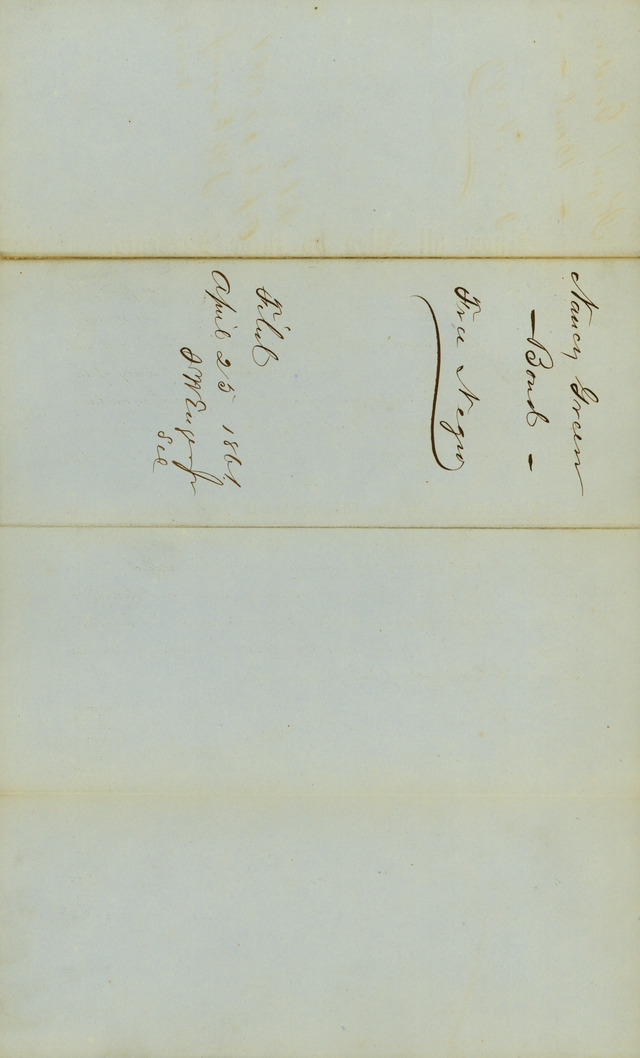 Nancy Green
— Bond —
Free Negro
Filed
April 25 1861